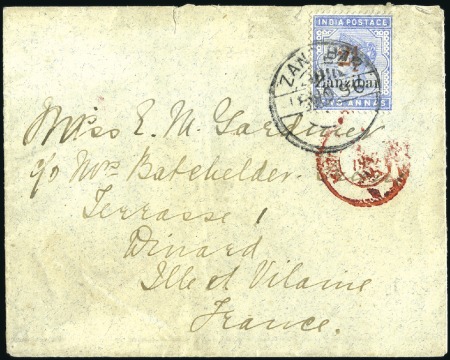 INDIA POSTAGE
Zanzibar
TWO ANNAS
ZANZIBAR
Miss E. M. Gardiner
c/o Mrs Batchelder
Terrasse 1
Dinard
Ille et Vilaine
France.